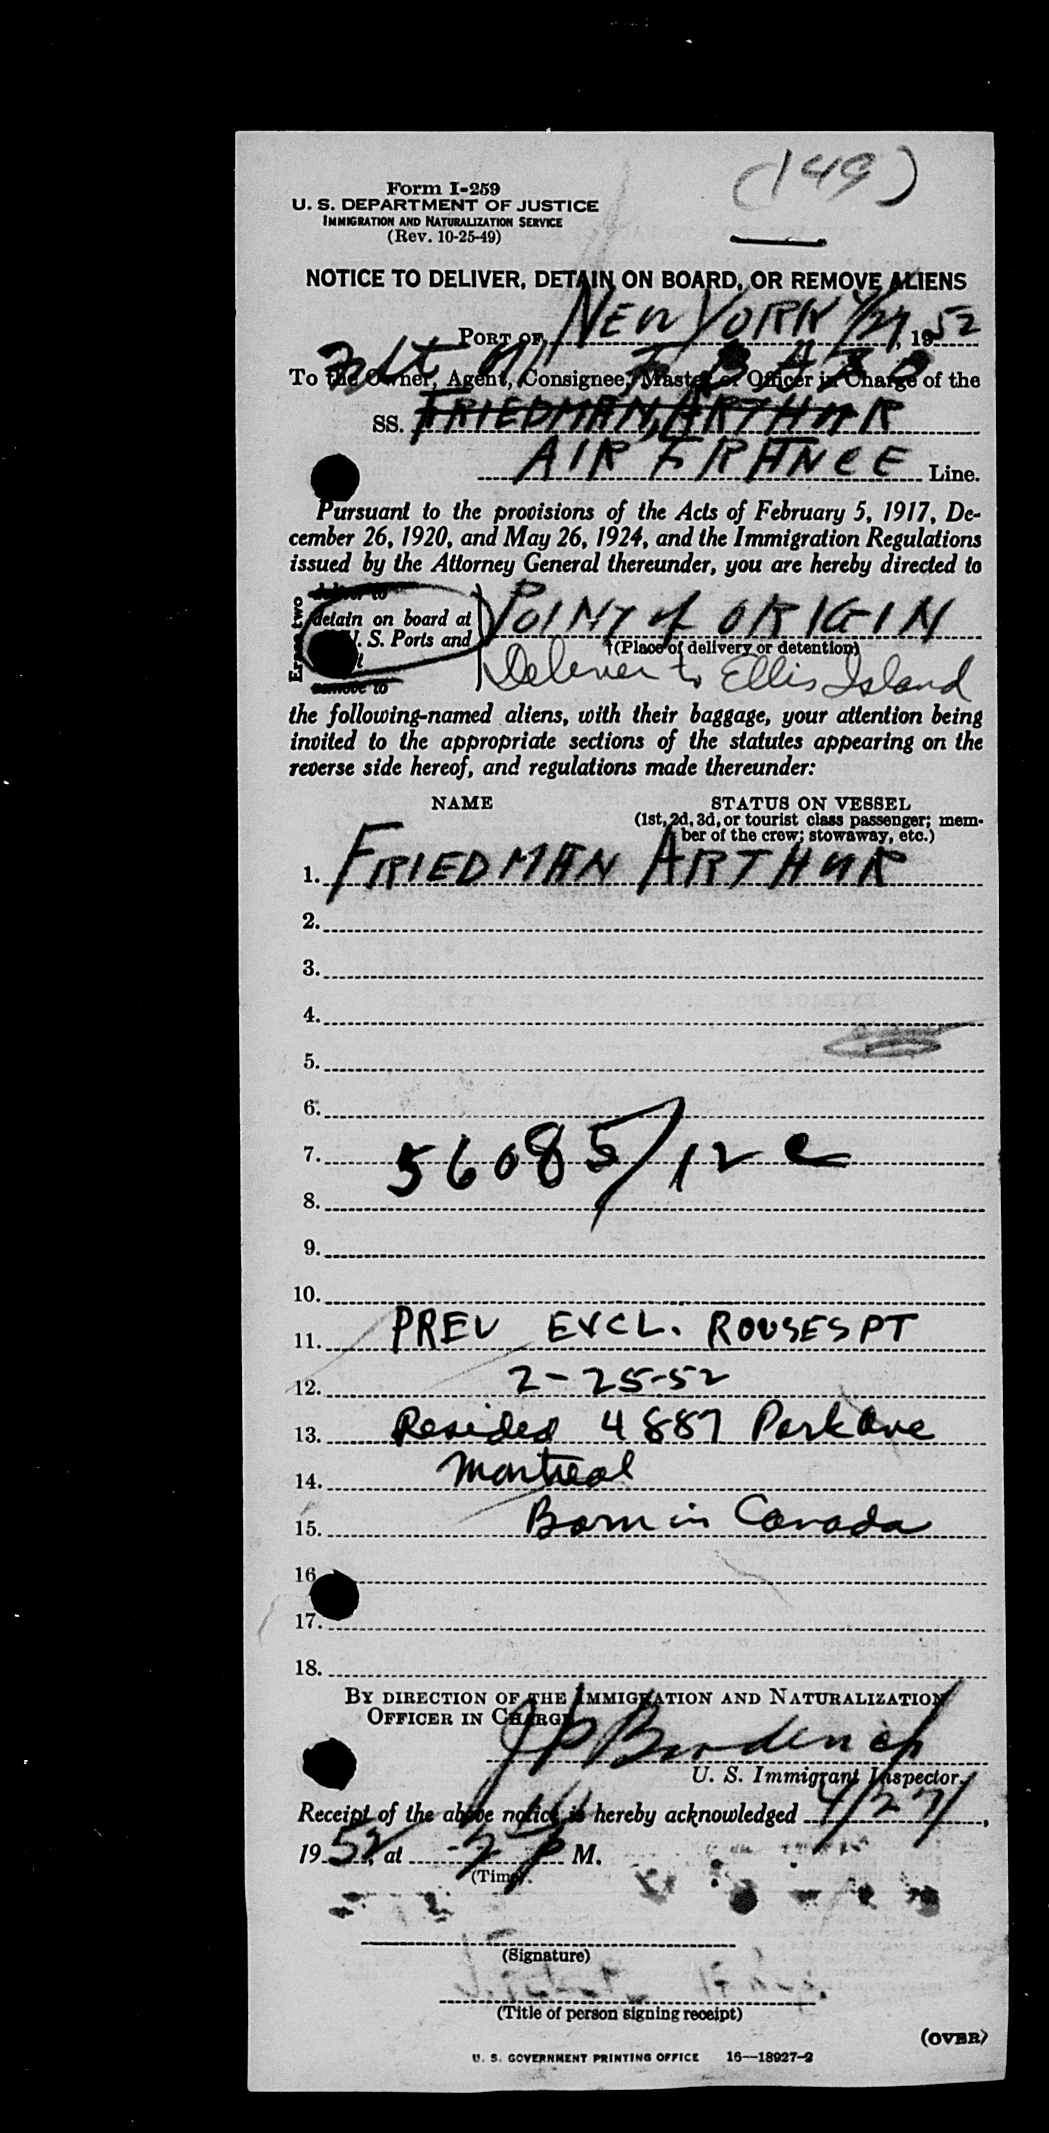 (149)
Form I-259
U. S. DEPARTMENT OF JUSTICE
IMMIGRATION AND NATURALIZATION SERVICE
(Rev. 10-25-49)
NOTICE TO DELIVER, DETAIN ON BOARD, OR REMOVE ALIENS
PORT OF NEW YORK 4/27, 1952
To the Owner, Agent, Consignee, Master or Officer in Charge of the
SS. FRIEDMAN, ARTHUR
AIR FRANCE Line.
Pursuant to the provisions of the Acts of February 5, 1917, De-
cember 26, 1920, and May 26, 1924, and the Immigration Regulations
issued by the Attorney General thereunder, you are hereby directed to
Erase two
deliver to
detain on board at POINT of ORIGIN
U. S. Ports and (Place of delivery or detention)
remove to Deliver to Ellis Island
the following-named aliens, with their baggage, your attention being
invited to the appropriate sections of the statutes appearing on the
reverse side hereof, and regulations made thereunder:
NAME STATUS ON VESSEL
(1st, 2d, 3d, or tourist class passenger; mem-
ber of the crew; stowaway, etc.)
1. FRIEDMAN ARTHUR
2.
3.
4.
5.
6.
7. 56085/12 c
8.
9.
10.
11. PREV EXCL. ROUSES PT
12. 2-25-52
13. Resided 4887 Park Ave
14. Montreal
15. Born in Canada
16.
17.
18.
BY DIRECTION OF THE IMMIGRATION AND NATURALIZATION
OFFICER IN CHARGE
U. S. Immigrant Inspector.
Receipt of the above notice is hereby acknowledged 4/27,
1952, at 2 P M.
(Time)
(Signature)
(Title of person signing receipt)
(OVER)
U. S. GOVERNMENT PRINTING OFFICE 16—18927-2